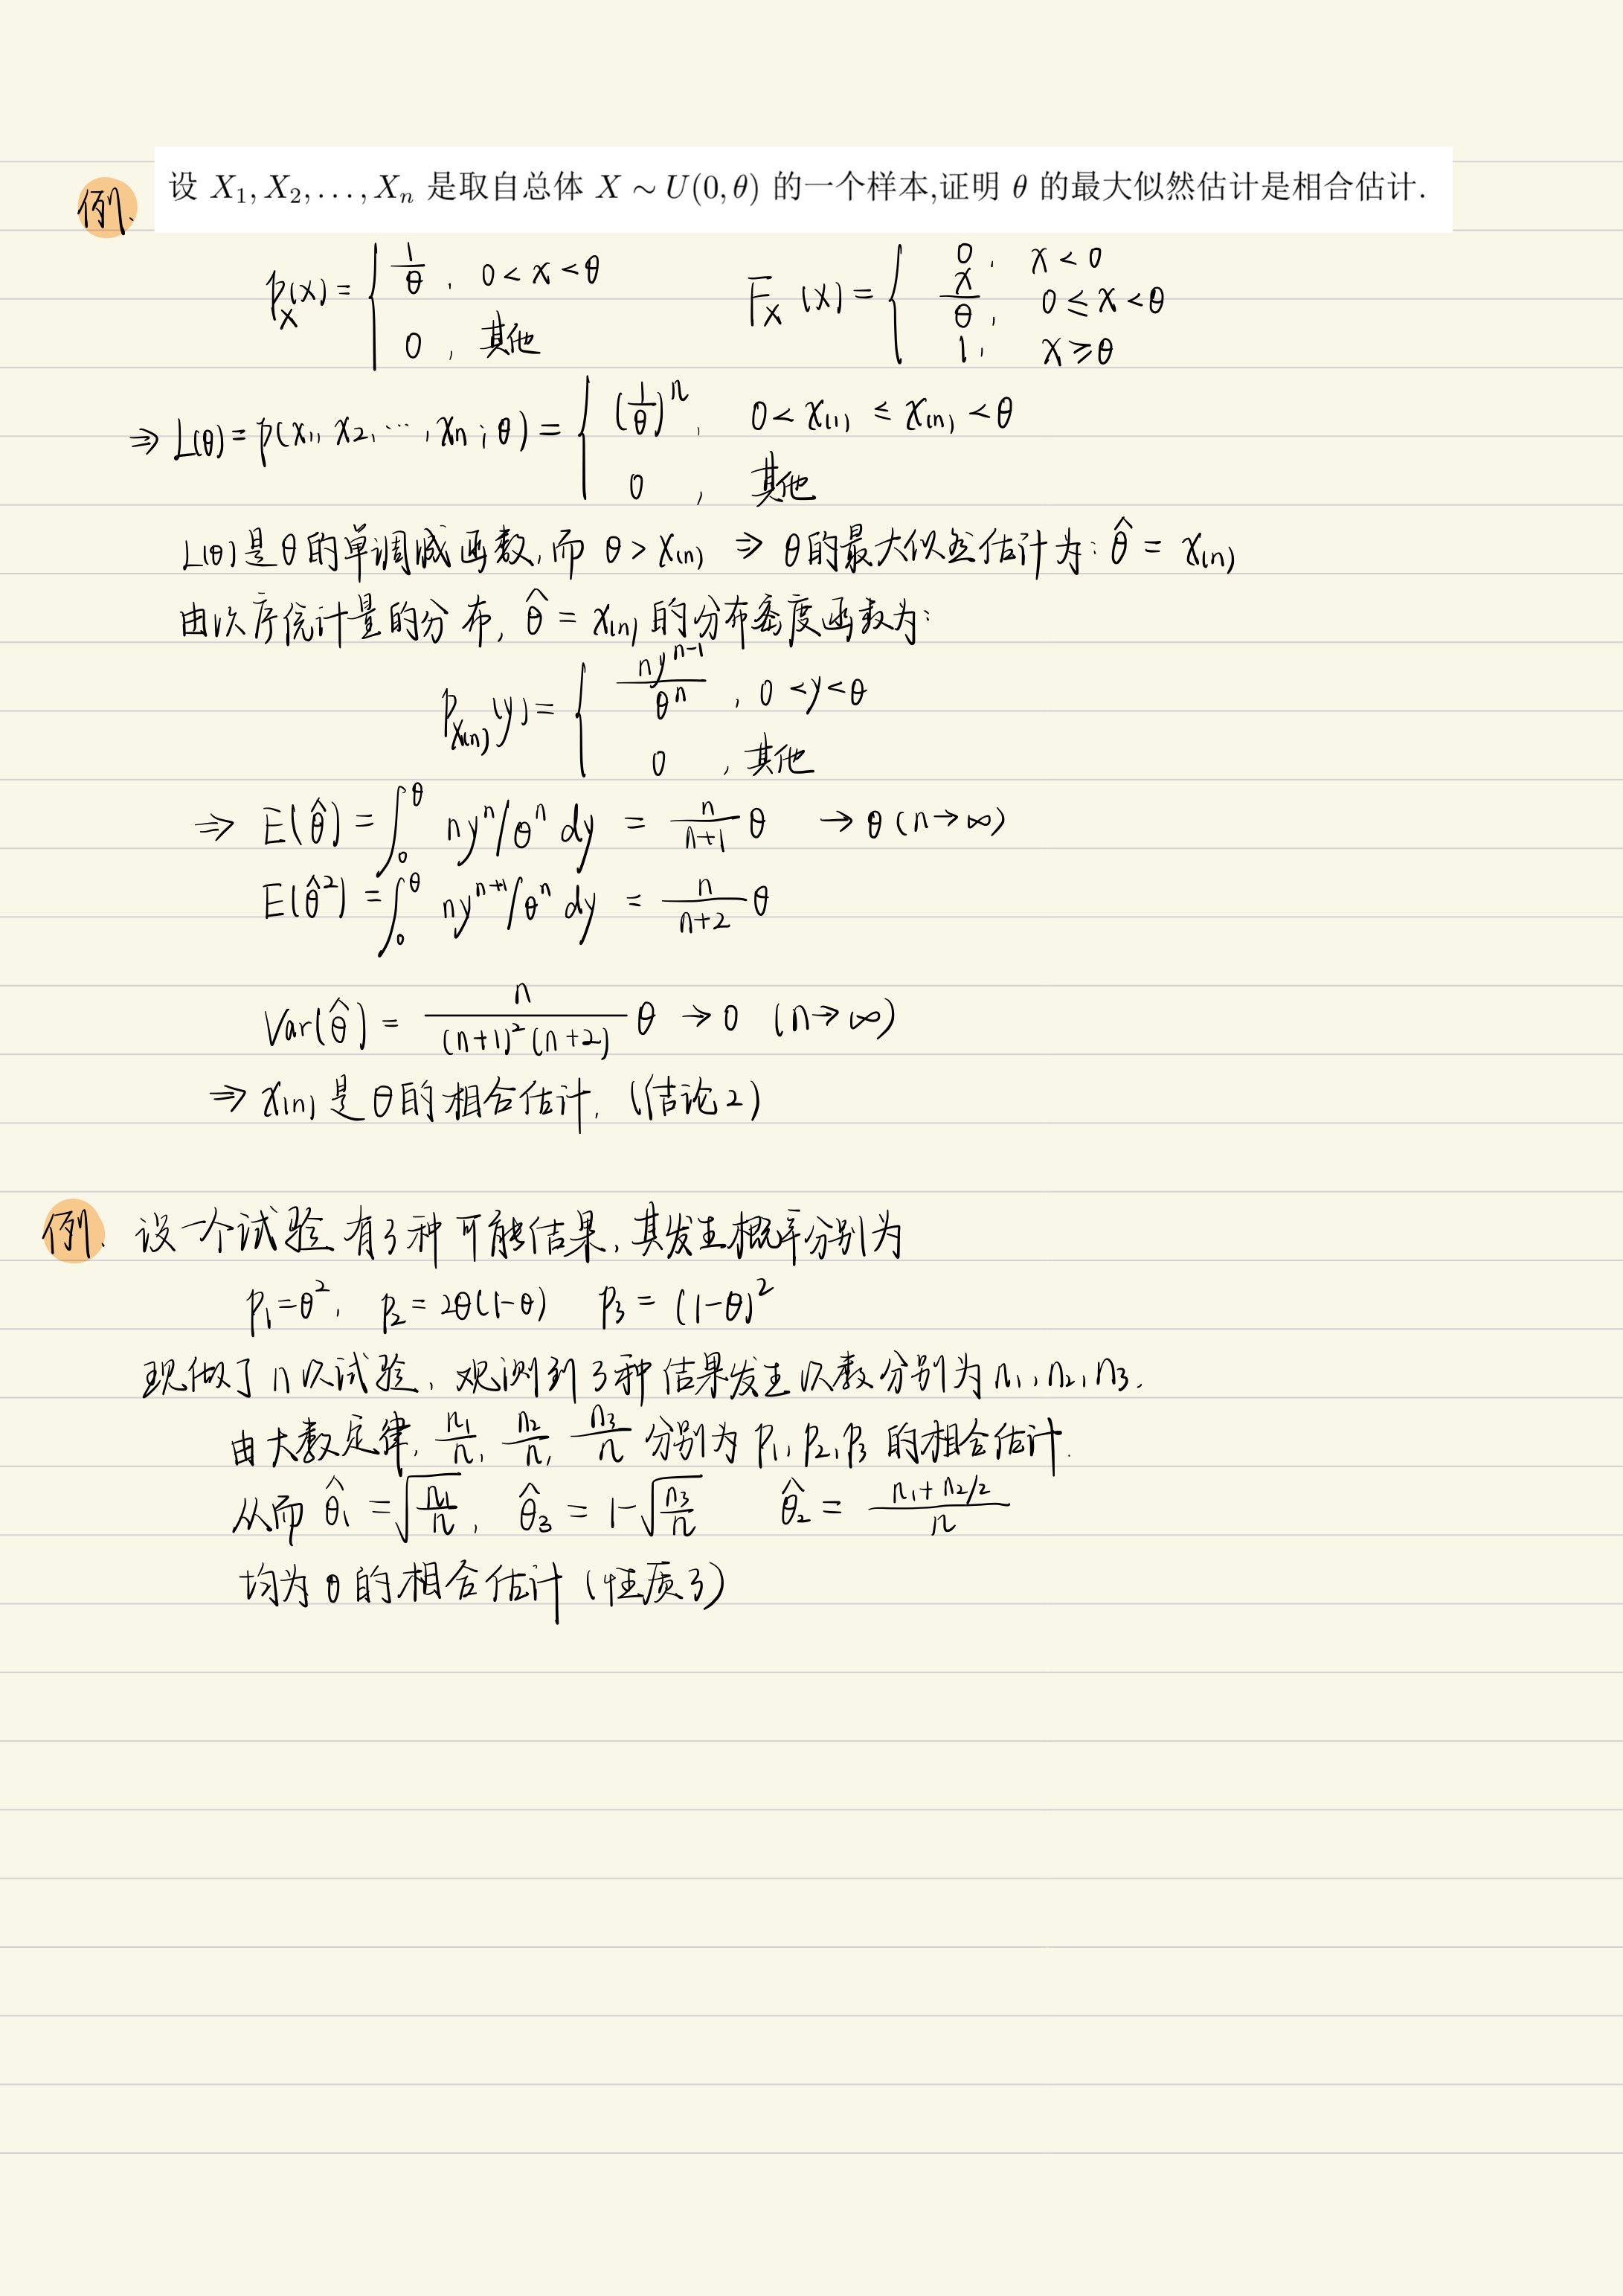 例. 设 X₁, X₂, ..., Xₙ 是取自总体 X ~ U(0, θ) 的一个样本,证明 θ 的最大似然估计是相合估计.
p_X(x) = { 1/θ , 0 < x < θ ; 0 , 其他    F_X(x) = { 0, x < 0 ; x/θ, 0 ≤ x < θ ; 1, x ≥ θ
⇒ L(θ) = p(x₁, x₂, ⋯, xₙ ; θ) = { (1/θ)ⁿ, 0 < x₍₁₎ ≤ x₍ₙ₎ < θ ; 0 , 其他
L(θ)是θ的单调减函数,而 θ > x₍ₙ₎ ⇒ θ的最大似然估计为: θ̂ = x₍ₙ₎
由次序统计量的分布, θ̂ = x₍ₙ₎ 的分布密度函数为:
p_{x₍ₙ₎}(y) = { nyⁿ⁻¹/θⁿ , 0 < y < θ ; 0 , 其他
⇒ E(θ̂) = ∫₀^θ nyⁿ/θⁿ dy = n/(n+1) θ → θ (n→∞)
E(θ̂²) = ∫₀^θ nyⁿ⁺¹/θⁿ dy = n/(n+2) θ
Var(θ̂) = n/((n+1)²(n+2)) θ → 0 (n→∞)
⇒ x₍ₙ₎ 是 θ的相合估计, (结论2)
例. 设一个试验有3种可能结果,其发生概率分别为
p₁=θ², p₂ = 2θ(1-θ) p₃ = (1-θ)²
现做了 n 次试验, 观测到3种结果发生次数分别为 n₁, n₂, n₃.
由大数定律, n₁/n, n₂/n, n₃/n 分别为 p₁, p₂, p₃ 的相合估计.
从而 θ̂₁ = √(n₁/n), θ̂₃ = 1-√(n₃/n) θ̂₂ = (n₁+n₂/2)/n
均为 θ 的相合估计 (性质3)